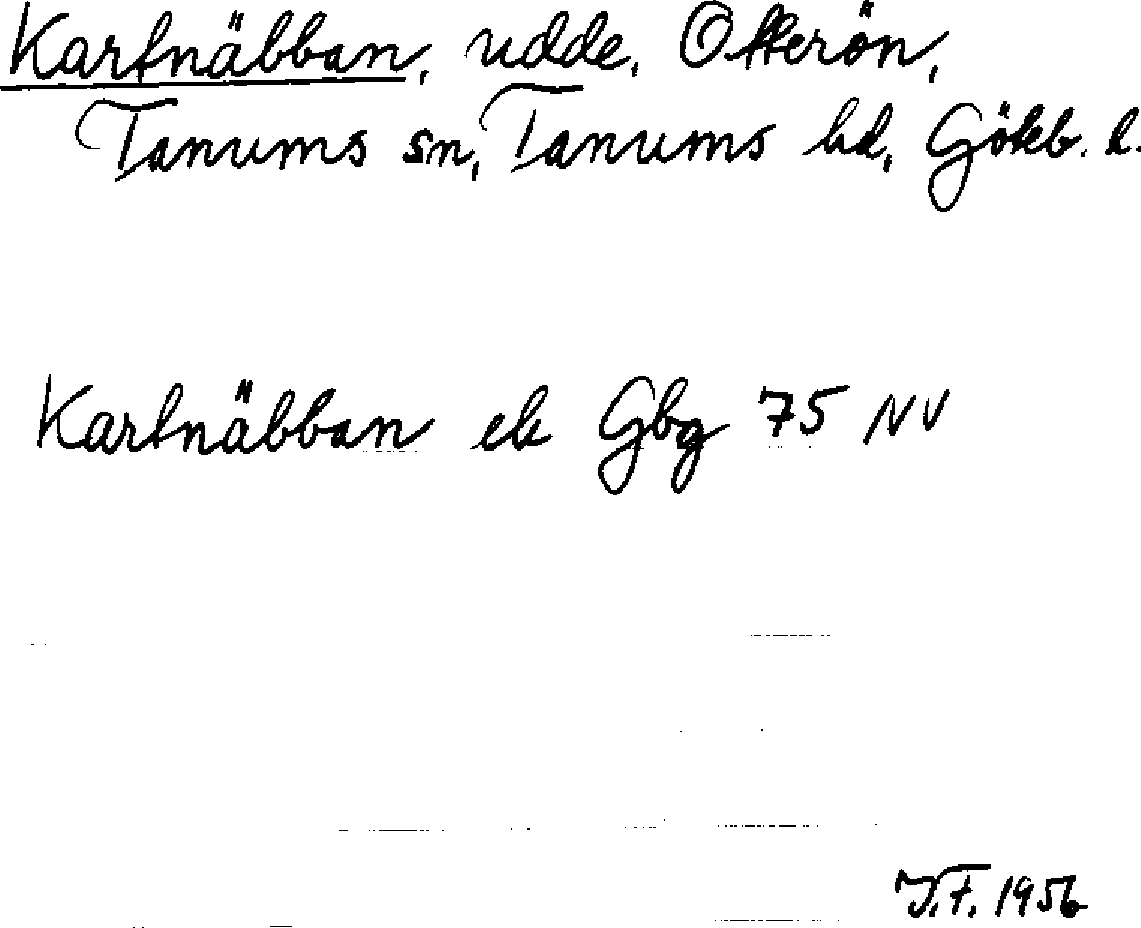 Karfnäbban, udde, Otterön,
Tanums sn, Tanums hd, Göteb. l.
Karfnäbban ek Gbg 75 NV
J.F. 1956